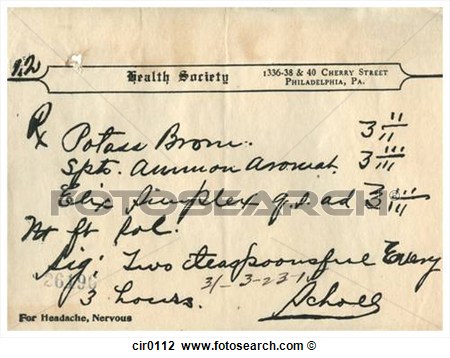 92
Health Society
1336-38 & 40 Cherry Street
Philadelphia, Pa.
Rx Potass Brom. ʒ ii
Spts. Ammon Aromat. ʒ iii
Elix Simplex q.s ad ʒ
M ft Sol.
Sig: Two teaspoonsful Every
3 hours. 31-3-23-1
Scholl
For Headache, Nervous
FOTOSEARCH
cir0112 www.fotosearch.com ©